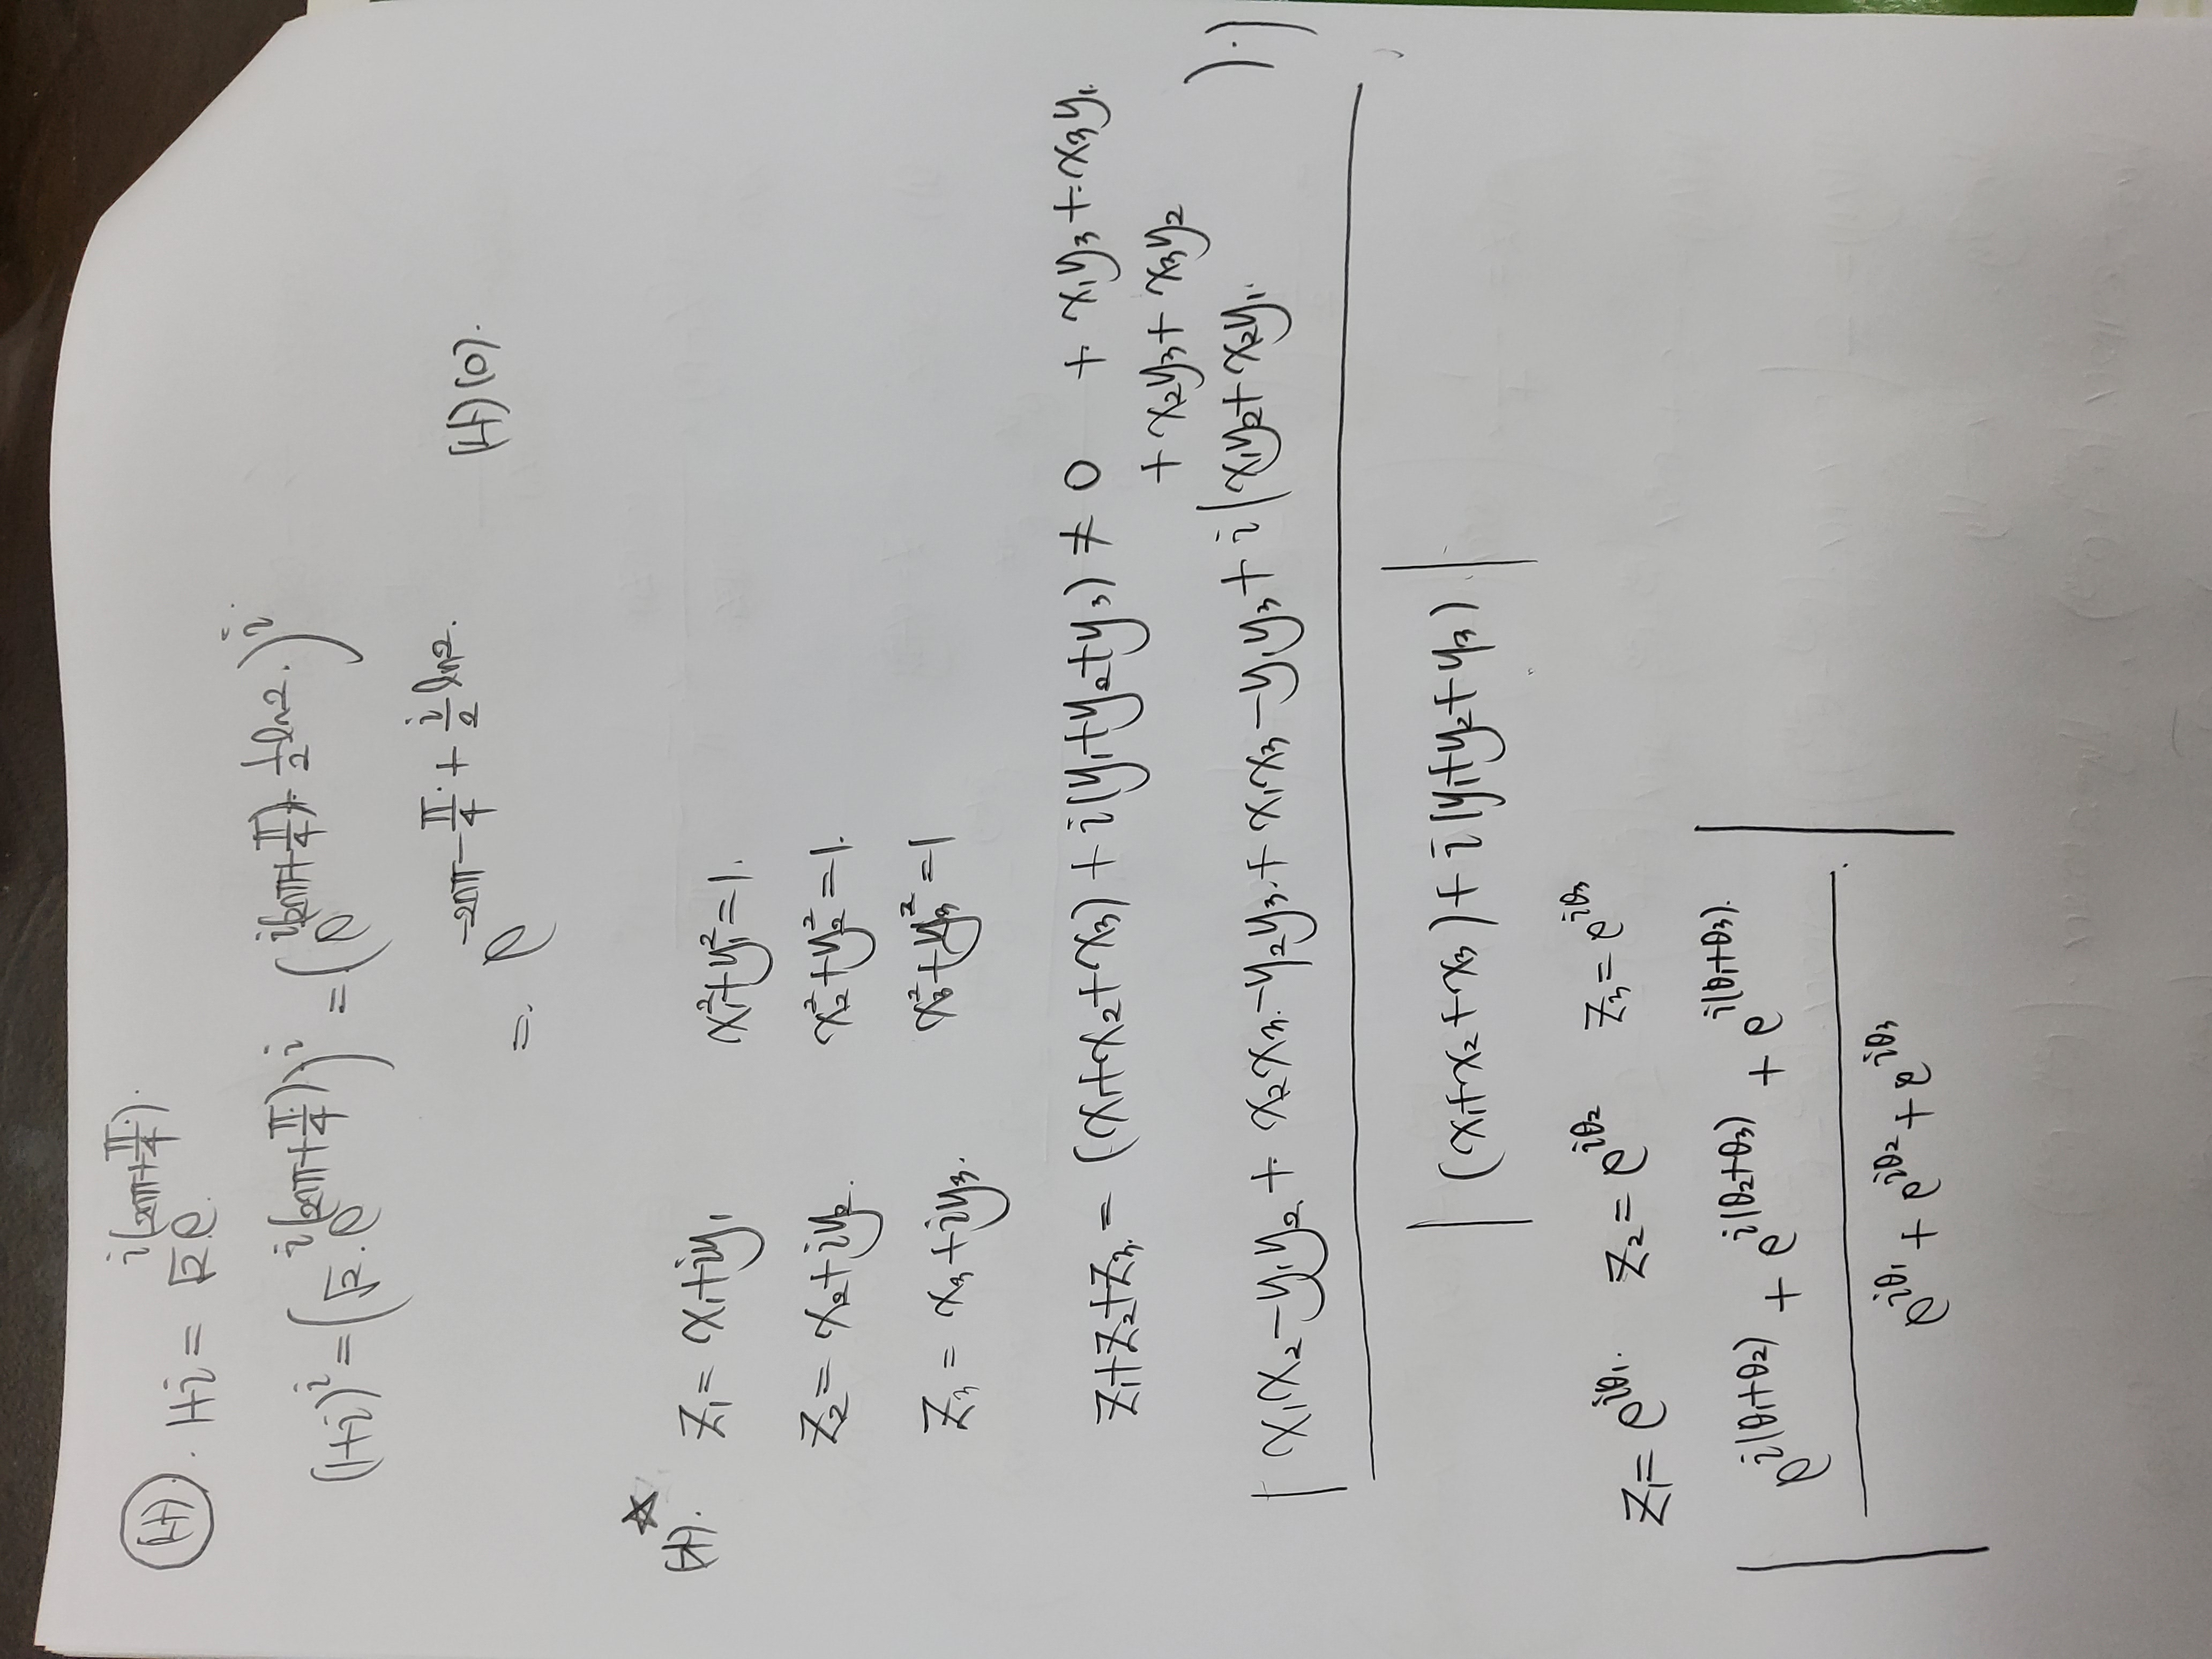 (H). 1+i = √2 e^{i(2nπ+π/4)}.
(1+i)^i = (√2 · e^{i(2nπ+π/4)})^i = (e^{i(2nπ+π/4)+½ln2.})^i.
= e^{-2nπ-π/4+i/2 ln2}.
(H)(0).
☆
(H). z₁ = x₁+iy₁ x₁²+y₁²=1.
z₂ = x₂+iy₂. x₂²+y₂²=1.
z₃ = x₃+iy₃. x₃²+y₃²=1
z₁+z₂+z₃ = (x₁+x₂+x₃)+i(y₁+y₂+y₃) ≠ 0 + x₁y₃+x₃y₁.
+ x₂y₃+x₃y₂
| x₁x₂-y₁y₂ + x₂x₃-y₂y₃+x₁x₃-y₁y₃+i(x₁y₂+x₂y₁. ).|
| (x₁+x₂+x₃)+i(y₁+y₂+y₃) |
z₁=e^{iθ₁}. z₂=e^{iθ₂} z₃=e^{iθ₃}
| e^{i(θ₁+θ₂)} + e^{i(θ₂+θ₃)} + e^{i(θ₁+θ₃)}. |
e^{iθ₁} + e^{iθ₂} + e^{iθ₃}